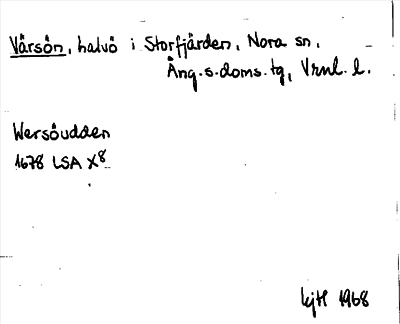 Värsön, halvö i Storfjärden, Nora sn,
Ång.s.doms.tg, Vrnl. l.
Wersöudden
1678 LSA X8
kjH 1968